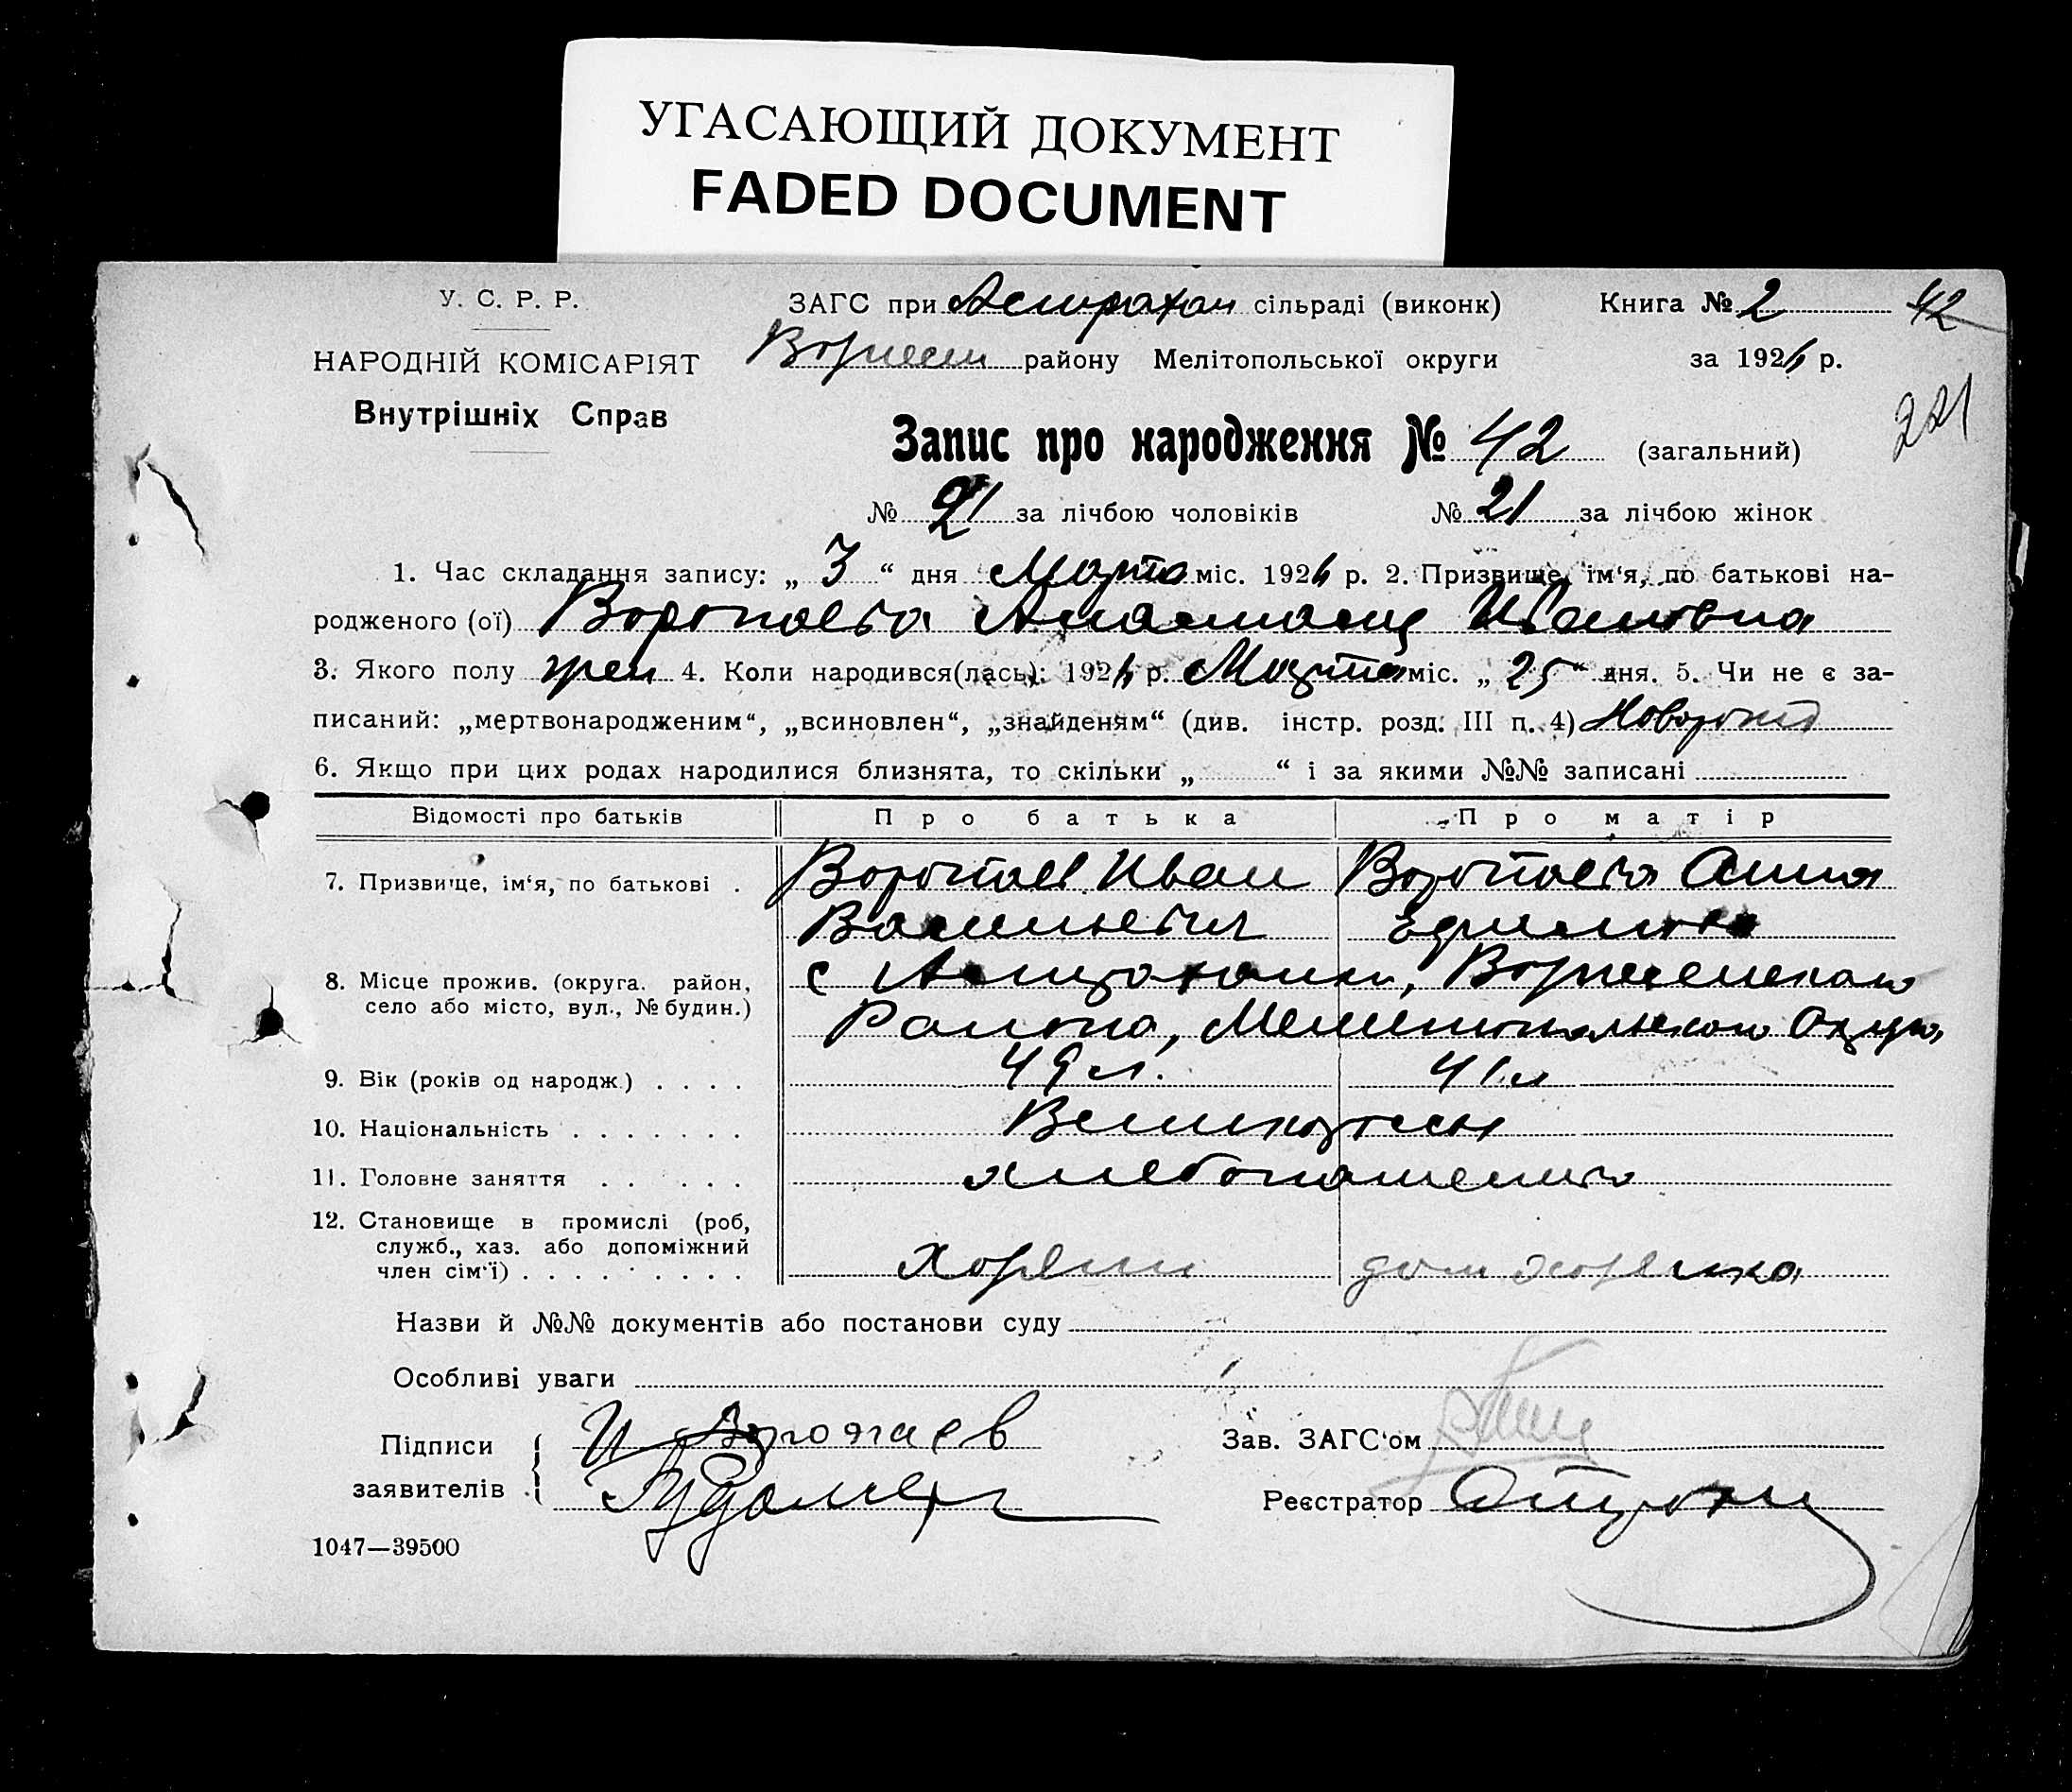 УГАСАЮЩИЙ ДОКУМЕНТ
FADED DOCUMENT
У. С. Р. Р.
НАРОДНІЙ КОМІСАРІЯТ
Внутрішніх Справ
ЗАГС при Астрахан сільраді (виконк)
Вознесен району Мелітопольської округи
Книга № 2
42
за 1924 р.
221
Запис про народження № 42 (загальний)
№ 21 за лічбою чоловіків № 21 за лічбою жінок
1. Час складання запису: „ 3 “ дня Марта міс. 1924 р. 2. Призвище, ім‘я, по батькові на-
родженого (ої) Воропаева Анастасия Ивановна
3. Якого полу жен 4. Коли народився(лась): 1924 р. Марта міс. „ 25 “ дня. 5. Чи не є за-
писаний: „мертвонародженим“, „всиновлен“, „знайденям“ (див. інстр. розд. III п. 4) Новорожд
6. Якщо при цих родах народилися близнята, то скільки „ “ і за якими №№ записані
Відомості про батьків Про батька Про матір
7. Призвище, ім‘я, по батькові . Воропаев Иван Воропаева Анна
Васильевич Ефимовна
8. Місце прожив. (округа. район,
село або місто, вул., № будин.)
с Астраханки, Вознесенского
Района, Мелитопольского Округа
9. Вік (років од народж.) . . . . 49 л. 41 л
10. Національність . . . . . . . Великоросы
11. Головне заняття . . . . . хлебопашенство
12. Становище в промислі (роб,
служб., хаз. або допоміжний
член сім‘ї) . . . . . . . . . Хозяин дом хозяйка
Назви й №№ документів або постанови суду
Особливі уваги
Підписи
заявителів
И Воропаев
Зав. ЗАГС‘ом
Реєстратор
1047—39500